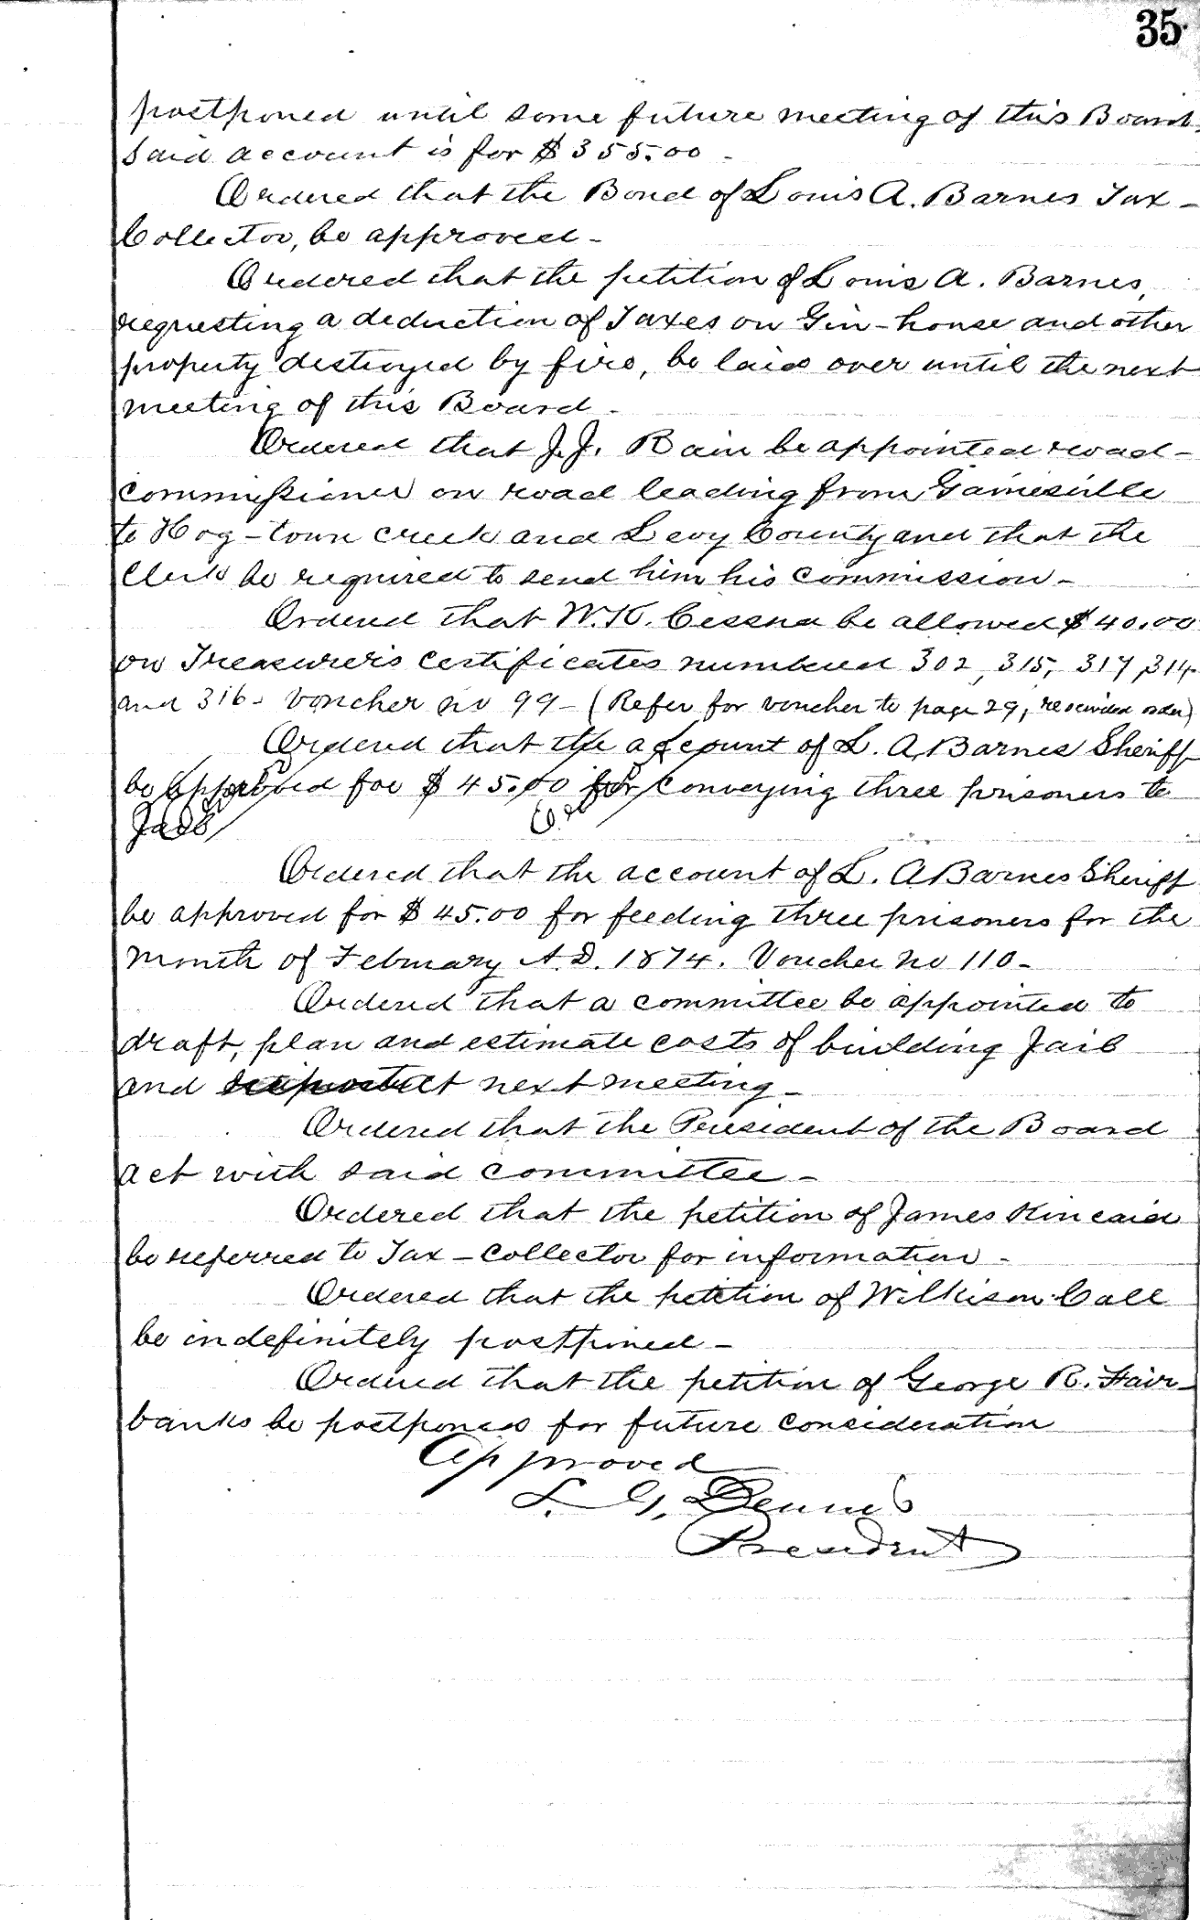 35
postponed until some future meeting of this Board.
Said account is for $355.00 -
Ordered that the Bond of Louis A. Barnes Tax-
Collector, be approved -
Ordered that the petition of Louis A. Barnes,
requesting a deduction of Taxes on Gin-house and other
property destroyed by fire, be laid over until the next
meeting of this Board -
Ordered that J.J. Bain be appointed road-
commissioner on road leading from Gainesville
to Hog-town creek and Levy County and that the
Clerk be required to send him his commission -
Ordered that W.K. Cessna be allowed $40.00
on Treasurer's certificates numbered 302, 315, 317, 314
and 316 - Voucher no 99 - (Refer for voucher to page 29, rescinded order)
Ordered that the account of L. A. Barnes Sheriff
be approved for $45.00 for conveying three prisoners to
Jail
Ordered that the account of L. A Barnes Sheriff
be approved for $45.00 for feeding three prisoners for the
month of February A.D. 1874. Voucher no 110 -
Ordered that a committee be appointed to
draft, plan and estimate costs of building Jail
and at next meeting -
Ordered that the President of the Board
act with said committee -
Ordered that the petition of James Kincaid
be referred to Tax-collector for information -
Ordered that the petition of Wilkison Call
be indefinitely postponed -
Ordered that the petition of George R. Fair-
banks be postponed for future consideration
Approved
L. G. Dennis
President